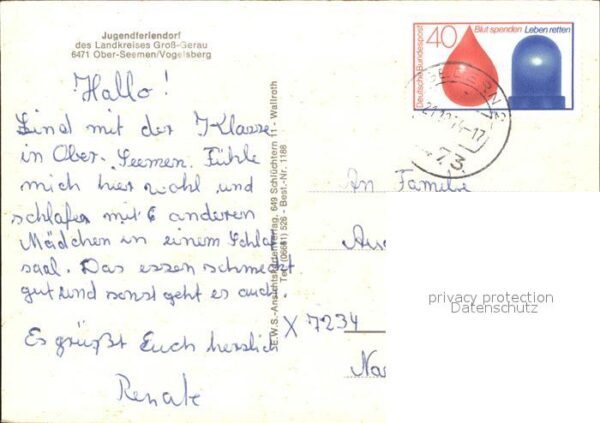 Jugendferiendorf
des Landkreises Groß-Gerau
6471 Ober-Seemen/Vogelsberg
Hallo!
Sind mit der Klasse
in Ober-Seemen. Fühle
mich hier wohl und
schlafe mit 6 anderen
Mädchen in einem Schlaf
saal. Das essen schmeckt
gut und sonst geht es auch.
Es grüßt Euch herzlich
Renate
E.W.S.-Ansichtskartenverlag, 649 Schlüchtern 11 - Wallroth
Tel. (06661) 526 - Best.-Nr. 1186
Deutsche Bundespost
40
Blut spenden Leben retten
73
An Familie
X 7234
privacy protection
Datenschutz